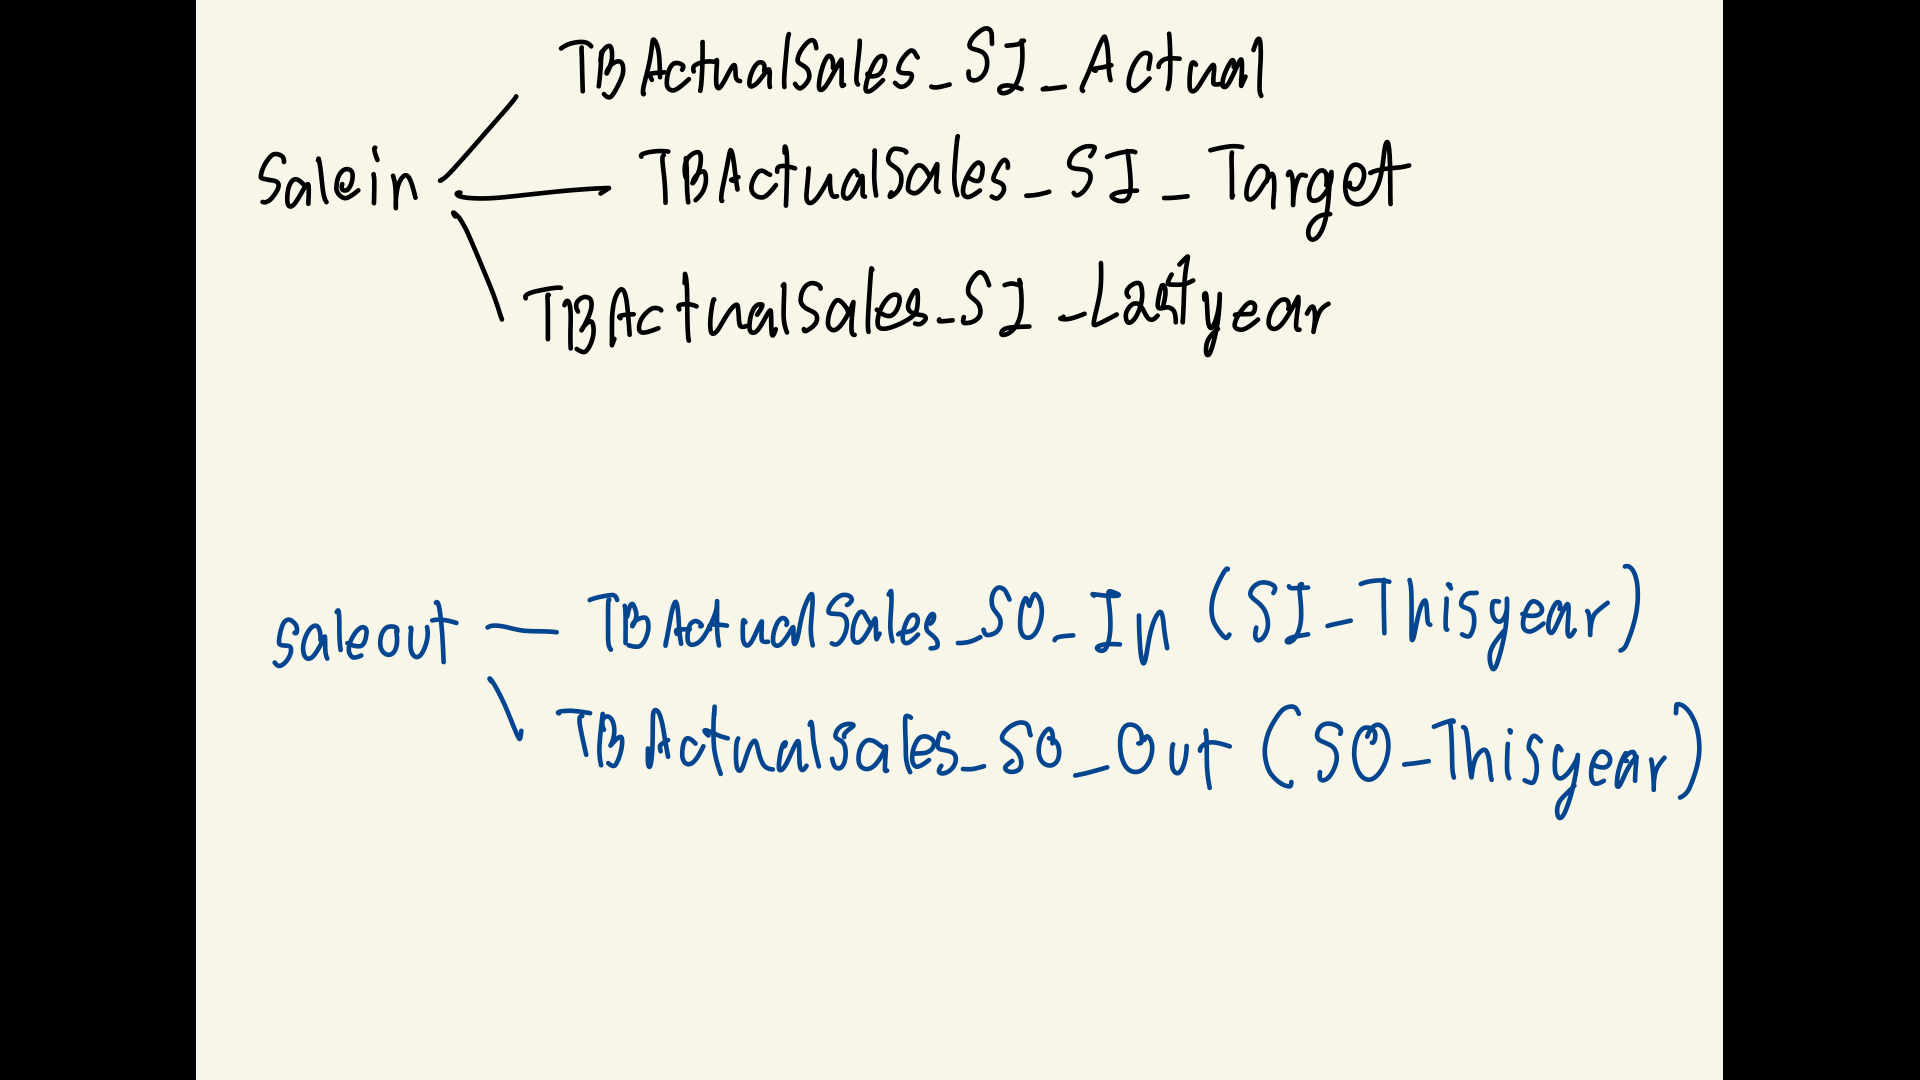 TBActualSales_SI_Actual
Salein
TBActualSales_SI_Target
TBActualSales_SI_Lastyear
saleout TBActualSales_SO_In (SI_Thisyear)
TBActualSales_SO_Out (SO_Thisyear)